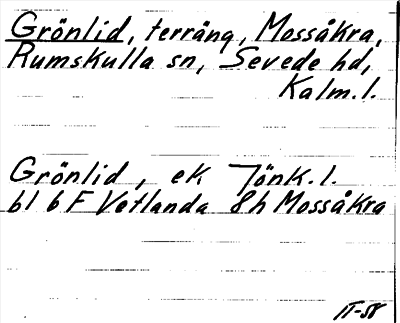 Grönlid, terräng, Mossåkra,
Rumskulla sn, Sevede hd,
Kalm.l.
Grönlid, ek Jönk.l.
bl 6 F Vetlanda 8h Mossåkra
II-58